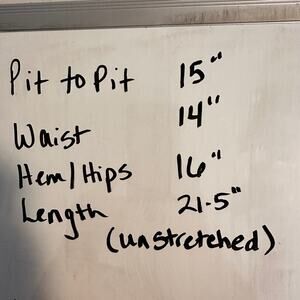 Pit to Pit 15"
Waist 14"
Hem/Hips 16"
Length 21.5"
(unstretched)